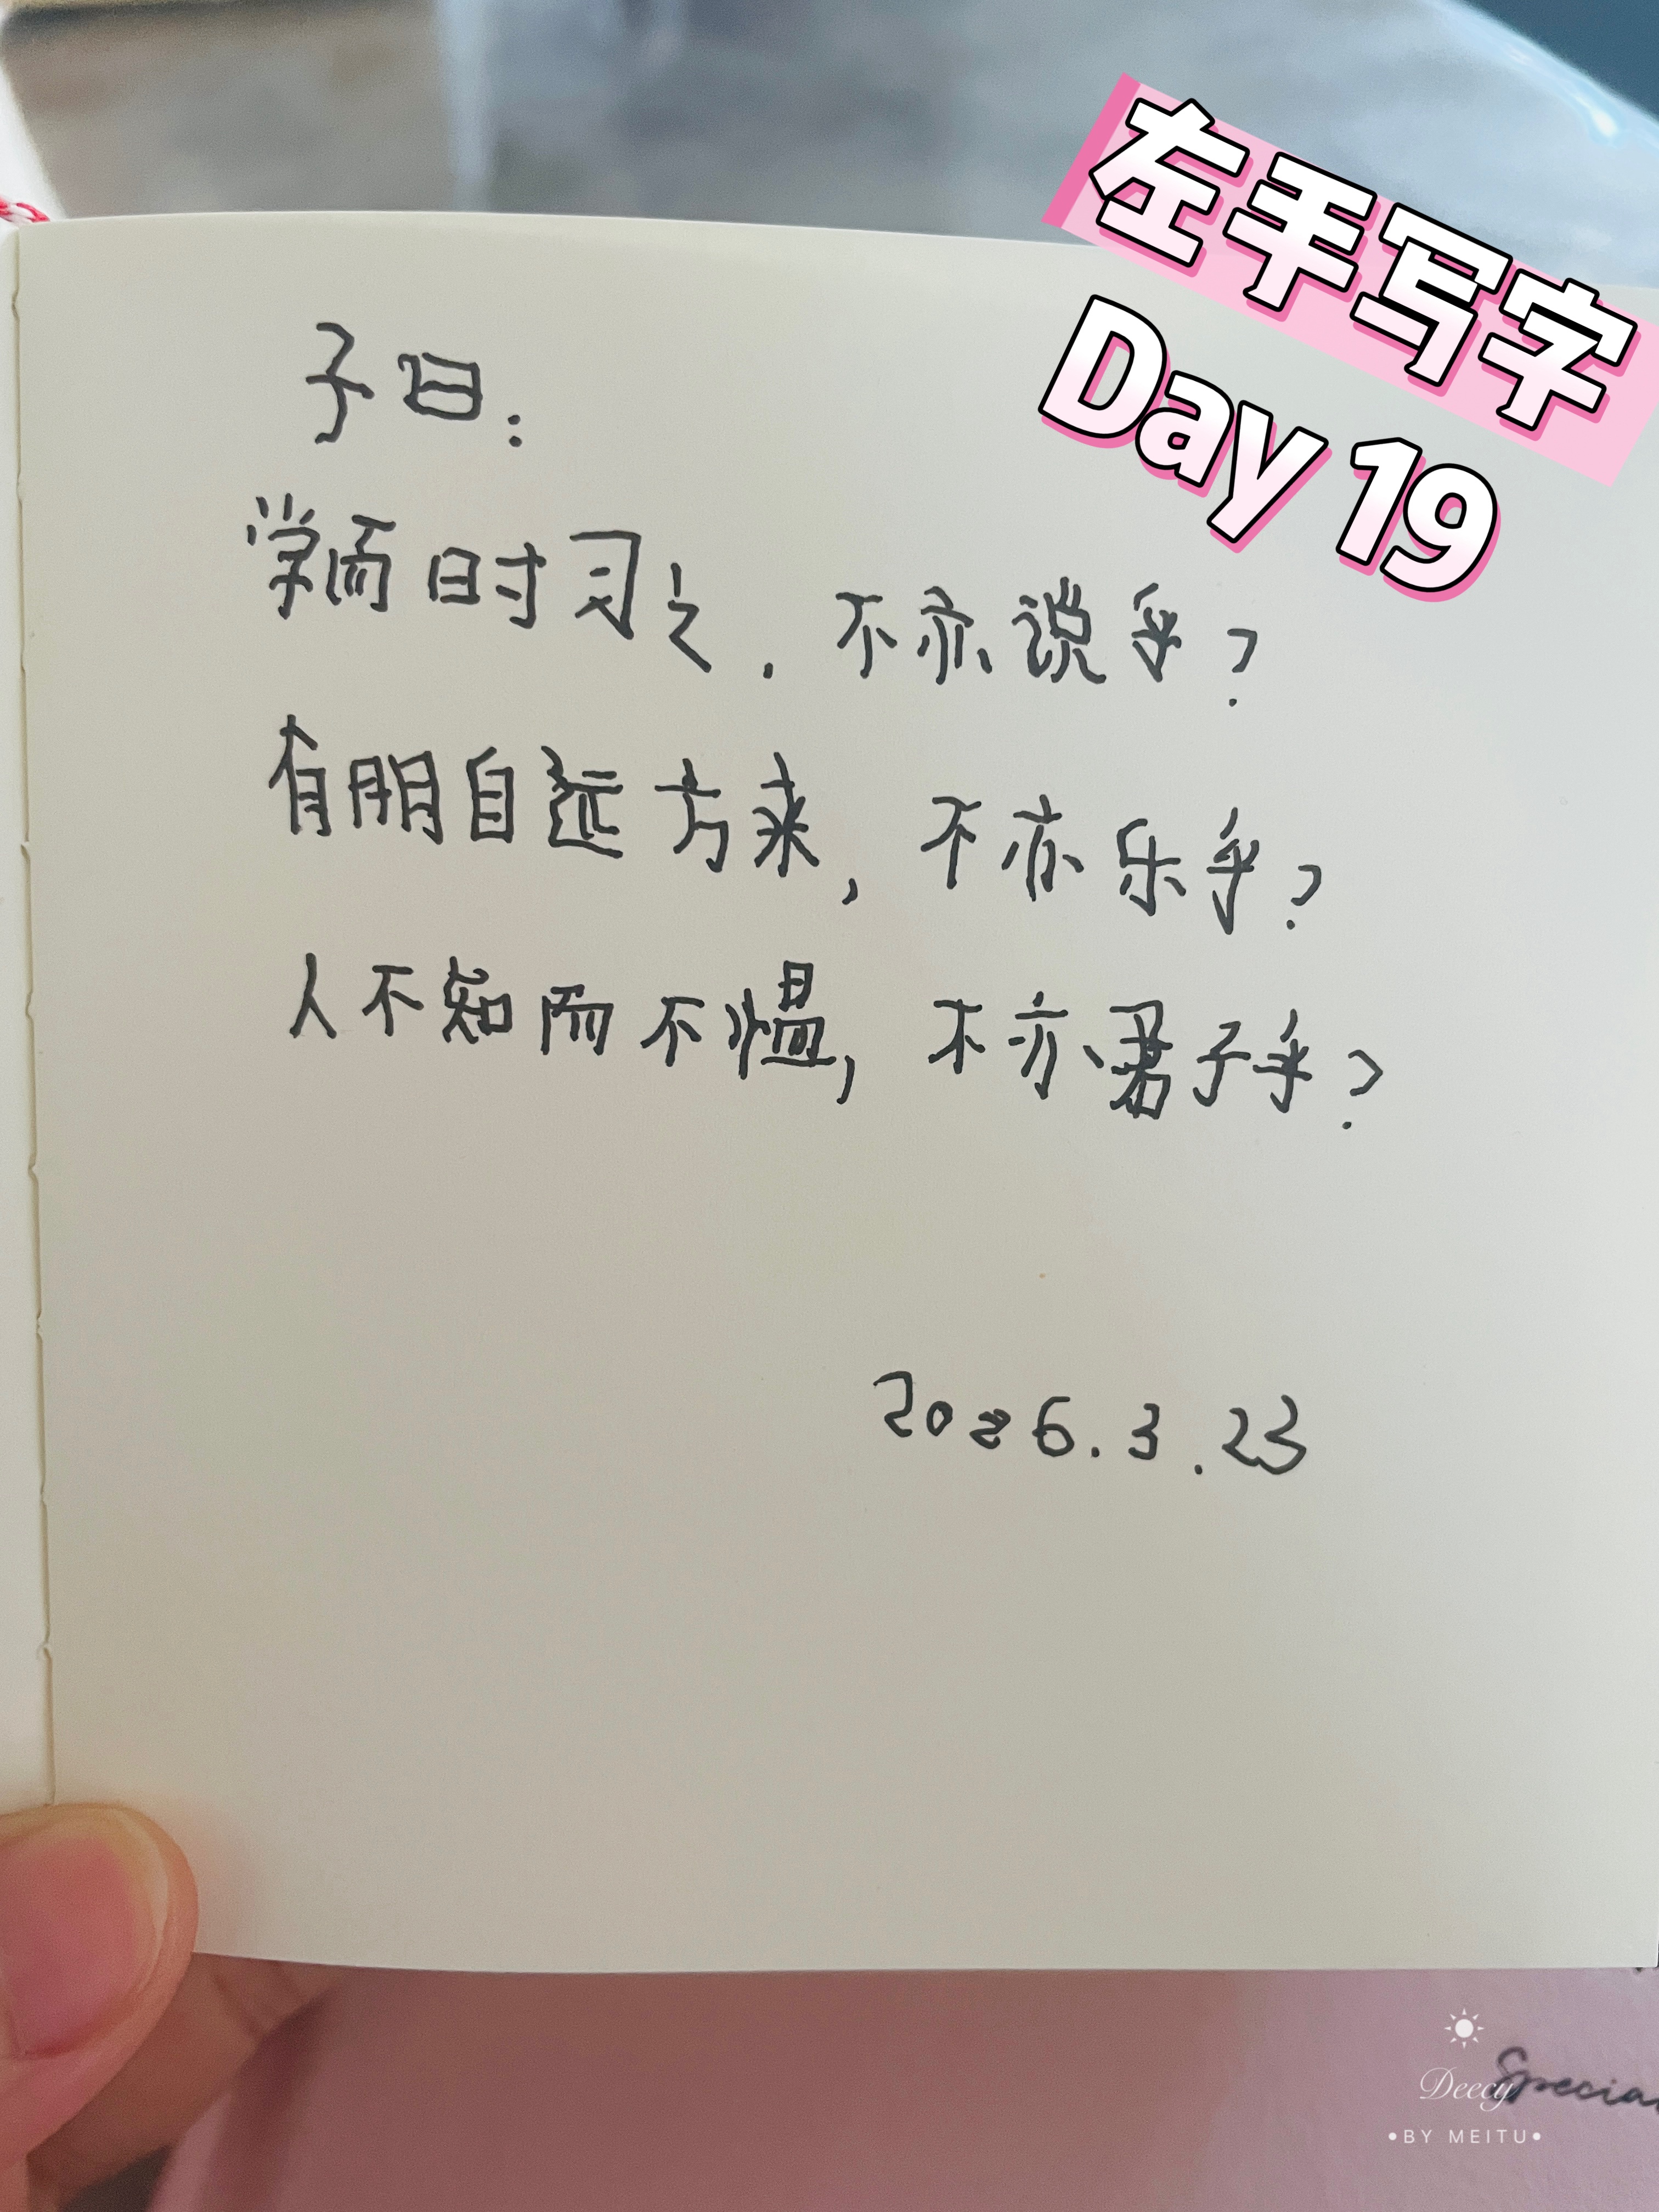 左手写字
Day 19
子曰：
学而时习之．不亦说乎？
有朋自远方来，不亦乐乎？
人不知而不愠，不亦君子乎？
2026.3.23
Special
Deecy
•BY MEITU•